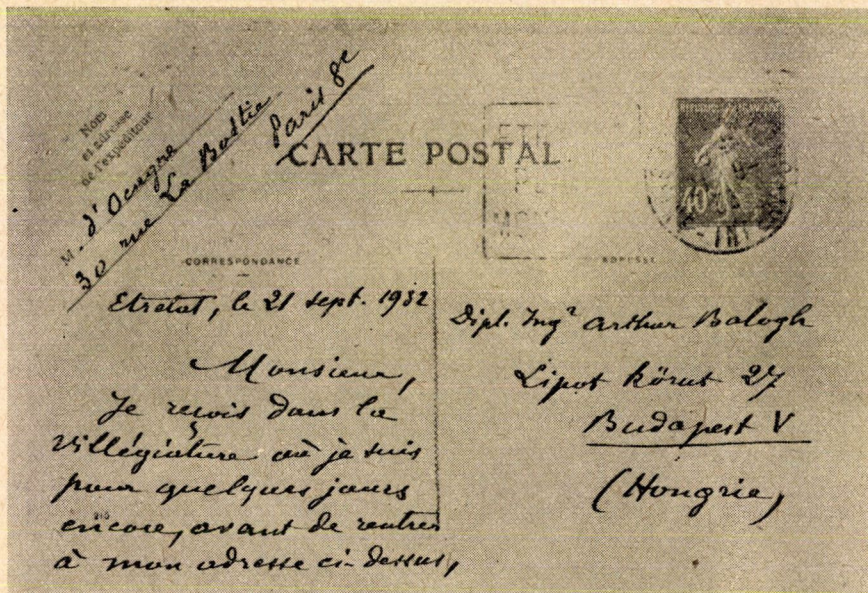 Nom
et adresse
de l'expéditeur
M. d'Ocagne
30 rue La Boétie
Paris 8e
CARTE POSTAL
40
CORRESPONDANCE
ADRESSE
Etretat, le 21 sept. 1932
Monsieur,
Je reçois dans la
villégiature où je suis
pour quelques jours
encore, avant de rentrer
à mon adresse ci-dessus,
Dipl. Ingr Arthur Balogh
Lipot körut 27
Budapest V
(Hongrie)